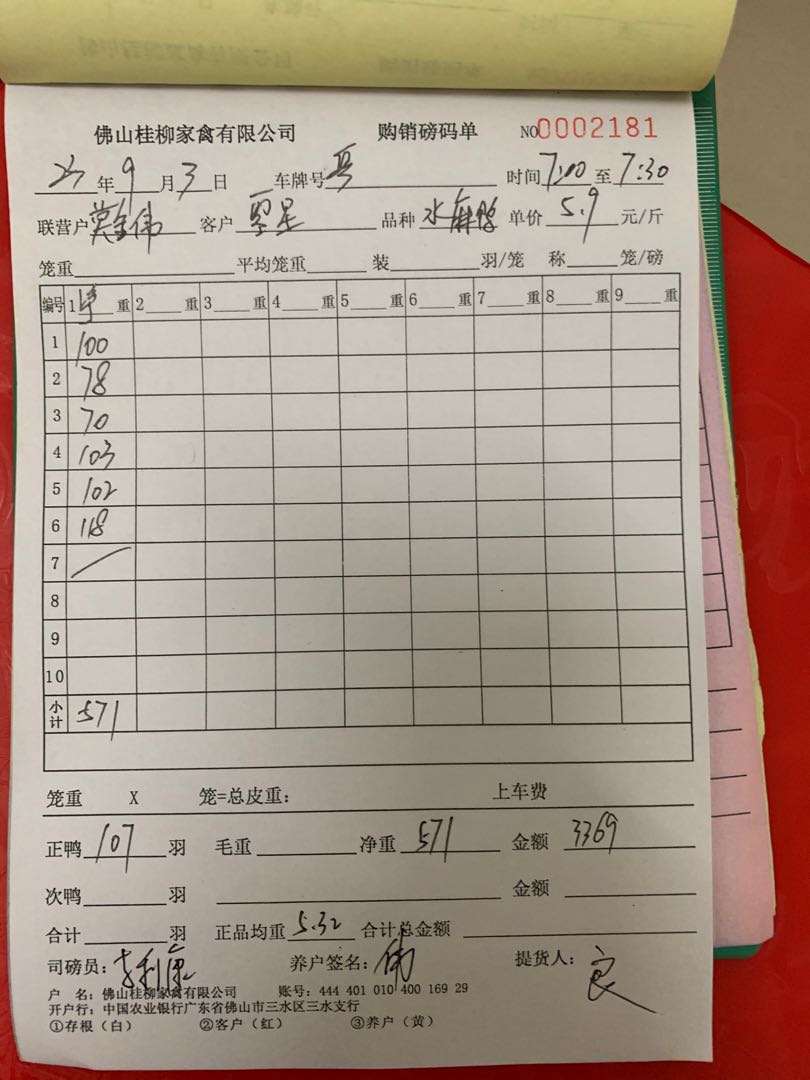 佛山桂柳家禽有限公司 购销磅码单 NO 0002181
23年9月3日 车牌号 时间7:00至7:30
联营户 莫金伟 客户 品种 水麻鸭 单价 5.9 元/斤
笼重 平均笼重 装 羽/笼 称 笼/磅
编号 1 净 重 2 重 3 重 4 重 5 重 6 重 7 重 8 重 9 重
1 100
2 78
3 70
4 103
5 102
6 118
7
8
9
10
小计 571
笼重 X 笼=总皮重: 上车费
正鸭 107 羽 毛重 净重 571 金额 3369
次鸭 羽 金额
合计 羽 正品均重 5.32 合计总金额
司磅员: 李利康 养户签名: 伟 提货人: 良
户 名: 佛山桂柳家禽有限公司 账号: 444 401 010 400 169 29
开户行: 中国农业银行广东省佛山市三水区三水支行
①存根(白) ②客户(红) ③养户(黄)